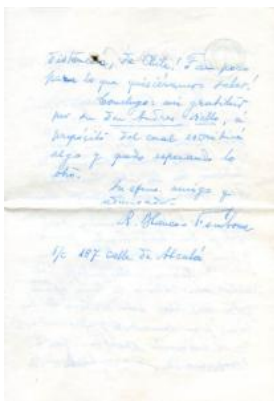 distancia, de Chile! Tan poco
para lo que quisiéramos saber!
Conclu­yo mi gratitud
por su Don Andrés Bello, a
propósito del cual escribiré
algo y quedo esperando lo
otro.
Su afmo. amigo y
admirador.
R. Blanco Fombona
S/c 187 calle de Alcalá